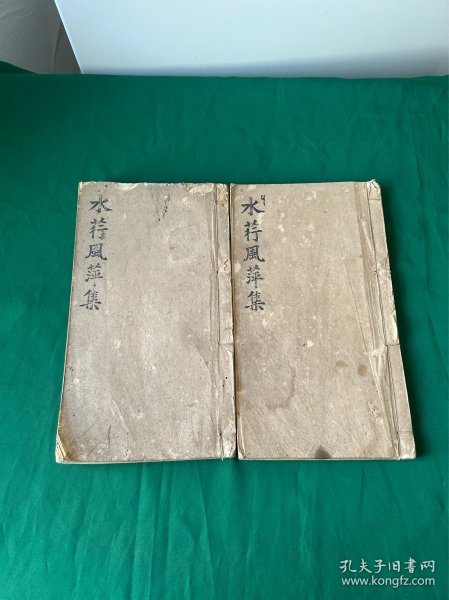 水荇風萍集
水荇風萍集
孔夫子旧书网
www.kongfz.com